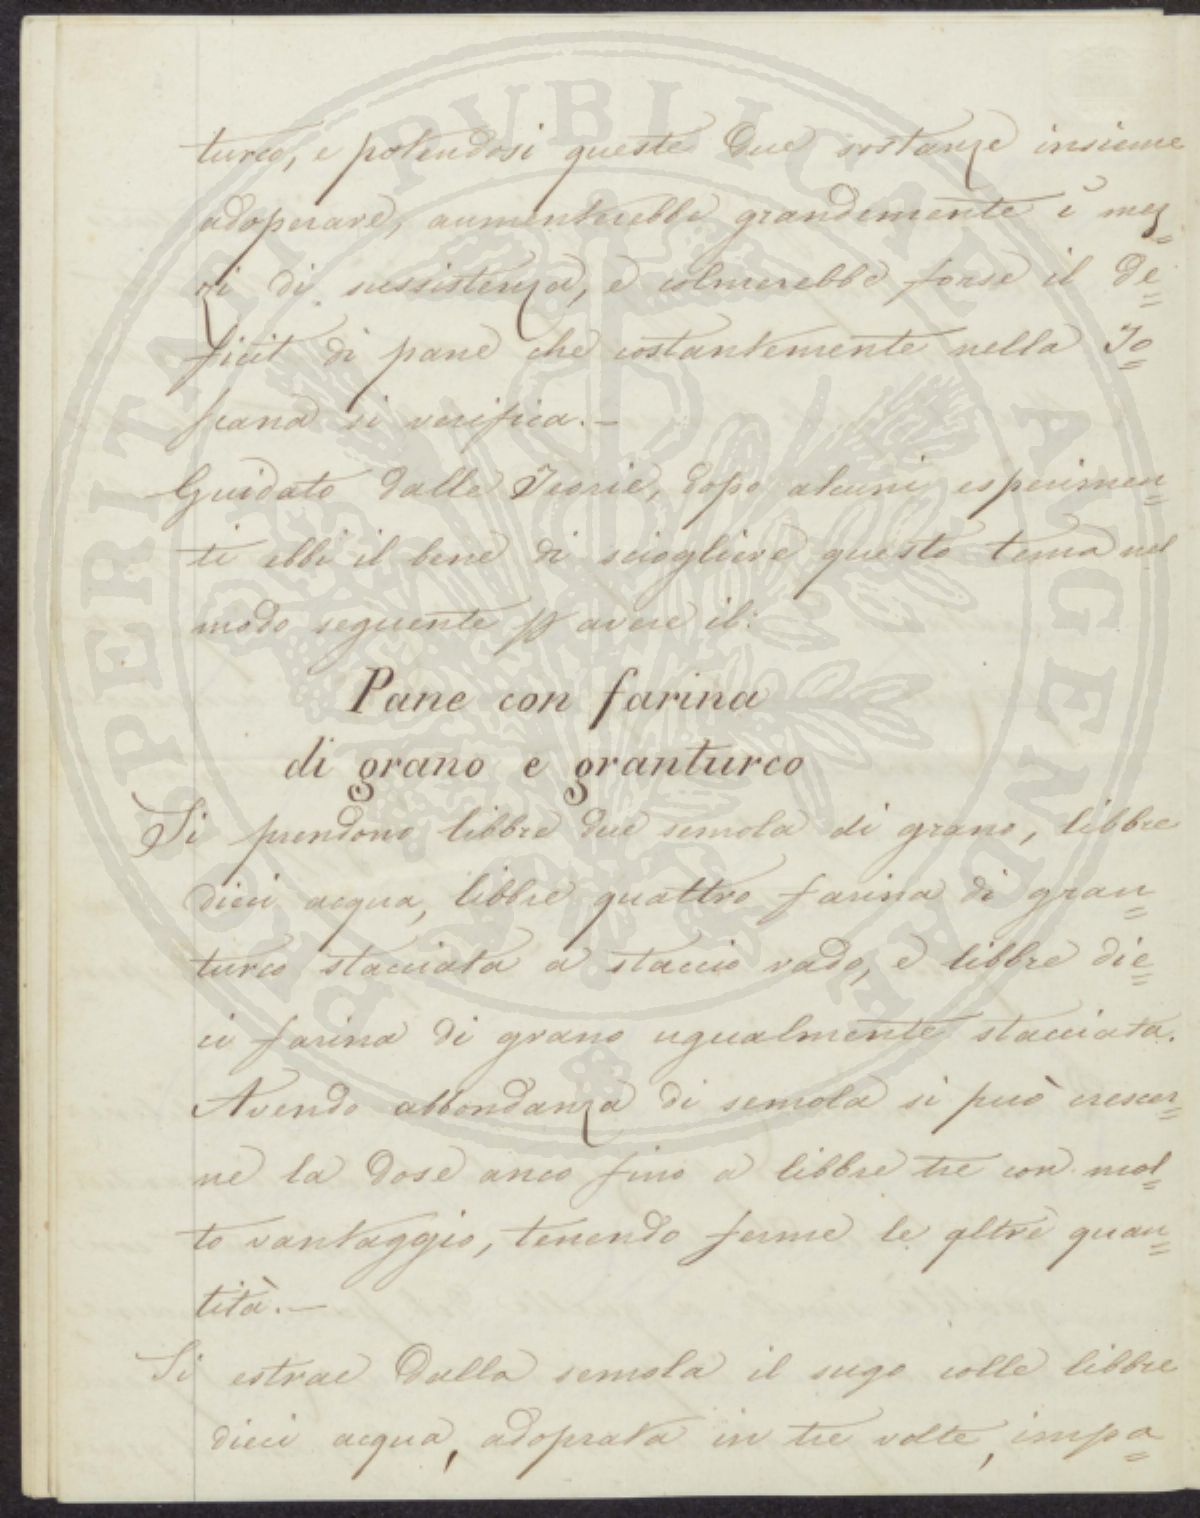 turco, e potendosi queste due sostanze insieme
adoperare, aumenterebbe grandemente i mez=
zi di sussistenza, e colmerebbe forse il de=
ficit di pane che costantemente nella To=
scana si verifica.—
Guidato dalle Teorie, dopo alcuni esperimen=
ti ebbi il bene di sciogliere questo tema nel
modo seguente p avere il:
Pane con farina
di grano e granturco
Si prendono libbre due semola di grano, libbre
dieci acqua, libbre quattro farina di gran=
turco stacciata a staccio rado, e libbre die=
ci farina di grano ugualmente stacciata.
Avendo abbondanza di semola si può crescer=
ne la dose anco fino a libbre tre con mol=
to vantaggio, tenendo ferme le altre quan=
tità.—
Si estrae dalla semola il sugo colle libbre
dieci acqua, adoprata in tre volte, impa=
PROSPERITATI PUBLICAE AUGENDAE